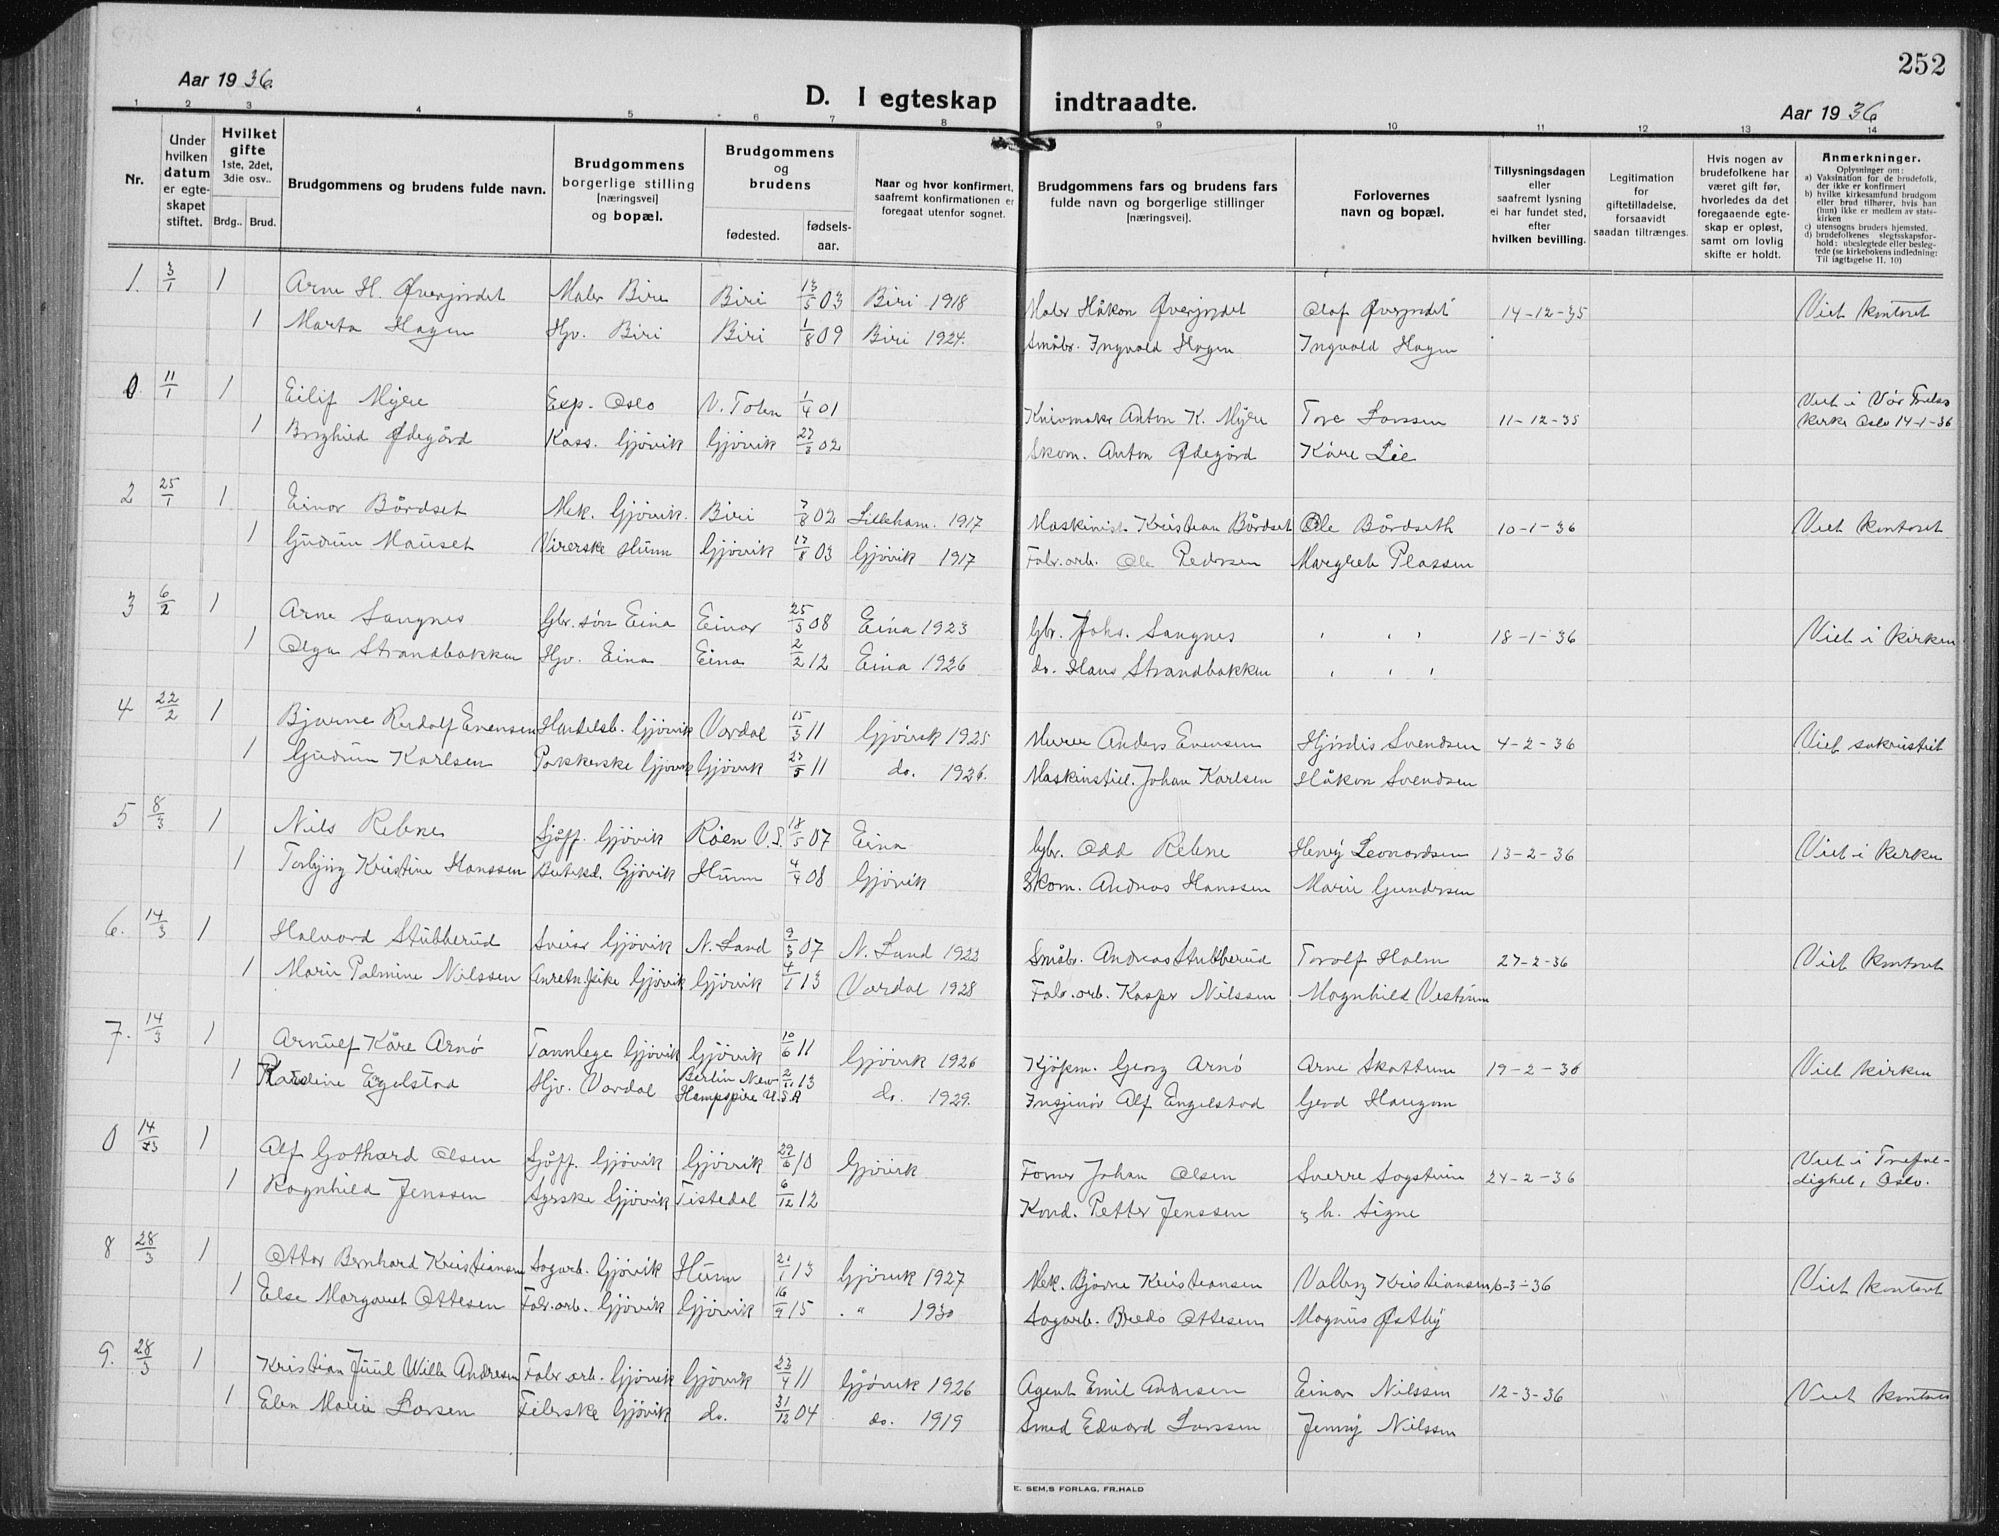 252
Aar 1936
D. I egteskap indtraadte.
Aar 1936
1 2 3 4 5 6 7 8 9 10 11 12 13 14
Nr.
Under hvilken datum er egteskapet stiftet.
Hvilket gifte 1ste, 2det, 3die osv..
Brdg.. Brud.
Brudgommens og brudens fulde navn.
Brudgommens borgerlige stilling [næringsvei] og bopæl.
Brudgommens og brudens
fødested.
fødselsaar.
Naar og hvor konfirmert, saafremt konfirmationen er foregaat utenfor sognet.
Brudgommens fars og brudens fars fulde navn og borgerlige stillinger [næringsvei].
Forlovernes navn og bopæl.
Tillysningsdagen eller saafremt lysning ei har fundet sted, efter hvilken bevilling.
Legitimation for giftetilladelse, forsaavidt saadan tiltrænges.
Hvis nogen av brudefolkene har været gift før, hvorledes da det foregaaende egteskap er opløst, samt om lovlig skifte er holdt.
Anmerkninger.
Oplysninger om:
a) Vaksination for de brudefolk, der ikke er konfirmert
b) hvilke kirkesamfund brudgom eller brud tilhører, hvis han (hun) ikke er medlem av statskirken
c) utensogns bruders hjemsted.
d) brudefolkenes slegtsskapsforhold: ubeslegtede eller beslegtede (se kirkebokens indledning: Til iagttagelse II. 10)
1. 3/1 1 Arne H. Øverjordet Maler Biri Biri 13/5 03 Biri 1918 Maler Håkon Øverjordet Olaf Øverjordet 14-12-35 Viet kontoret
1 Marta Hagen Hjv. Biri Biri 1/8 09 Biri 1924. Småbr. Ingvald Hagen Ingvald Hagen
0. 11/1 1 Eilif Myre Exp. Oslo V. Toten 1/4 01 Knivmaker Anton K. Myre Tore Larssen 11-12-35 Viet i Vår Frelsers kirke Oslo 14-1-36
1 Borghild Ødegård Kass. Gjøvik Gjøvik 27/3 02 Skom. Anton Ødegård Kåre Lie
2 25/1 1 Einar Bårdset Mek. Gjøvik. Biri 7/8 02 Lilleham. 1917 Maskinist. Kristian Bårdset Ole Bårdseth 10-1-36 Viet kontoret
1 Gudrun Mauset Virerske Hunn Gjøvik 17/8 03 Gjøvik 1917 Fabr.arb. Ole Pedersen Margrete Plassen
3 6/2 1 Arne Sangnes Gbr. søn Eina Einar 25/3 08 Eina 1923 Gbr. Johs. Sangnes 18-1-36 Viet i kirken
1 Olga Strandbakken Hjv. Eina Eina 2/2 12 Eina 1926 do. Hans Strandbakken
4 22/2 1 Bjarne Rudolf Evensen Handelsb. Gjøvik Vardal 15/3 11 Gjøvik 1925 Murer Anders Evensen Hjørdis Svendsen 4-2-36 Viet sakristiet
1 Gudrun Karlsen Pakkerske Gjøvik Gjøvik 27/5 11 do. 1926. Maskinstill. Johan Karlsen Håkon Svendsen
5 8/3 1 Nils Rebne Sjåff. Gjøvik Røen V.S. 18/5 07 Eina Gbr. Odd Rebne Henry Leonardsen 13-2-36 Viet i kirken
1 Torbjørg Kristine Hanssen Butekd. Gjøvik Hunn 4/4 08 Gjøvik Skom. Andreas Hanssen Marie Gundersen
6. 14/3 1 Halvord Stubberud Sveiser Gjøvik N. Land 9/3 07 N. Land 1922 Småbr. Andreas Stubberud Torolf Holm 27-2-36 Viet kontoret
1 Marie Palmine Nilssen Anretn.pike Gjøvik Gjøvik 4/1 13 Vardal 1928 Fabr.arb. Kasper Nilssen Magnhild Vestrum
7. 14/3 1 Arnulf Kåre Arnø Tannlege Gjøvik Gjøvik 10/6 11 Gjøvik 1926 Kjøpm. Georg Arnø Arne Skattum 19-2-36 Viet kirken
1 Engelstad Hjv. Vardal Berlin New Hampspire U.S.A 2/11 13 do. 1929. Insjeniør Alf Engelstad Gerd Haugom
0 14/3 1 Alf Gothard Olsen Sjåff. Gjøvik Gjøvik 29/6 10 Gjøvik Former Johan Olsen Sverre Sogstuine 24-2-36 Viet i Trefoldighet, Oslo.
1 Ragnhild Jenssen Syrske Gjøvik Tistedal 6/12 12 Kond. Petter Jenssen h. Signe
8 28/3 1 Ottar Bernhard Kristiansen Sagarb. Gjøvik Hunn 21/1 13 Gjøvik 1927 Mek. Bjarne Kristiansen Valborg Kristiansen 6-3-36 Viet kontoret
1 Else Margaret Ottesen Fabr.arb. Gjøvik Gjøvik 16/9 15 " 1930 Sagarb. Bredo Ottesen Magnus Østby
9. 28/3 1 Kristian Juul Wille Andresen Fabr.arb. Gjøvik Gjøvik 23/4 11 Gjøvik 1926 Agent Emil Andresen Einar Nilssen 12-3-36 Viet kontoret
1 Elen Marie Larsen Filerske Gjøvik do. 31/12 04 do. 1919 Smed Edvard Larssen Jenny Nilssen
E. SEM,S FORLAG, FR.HALD